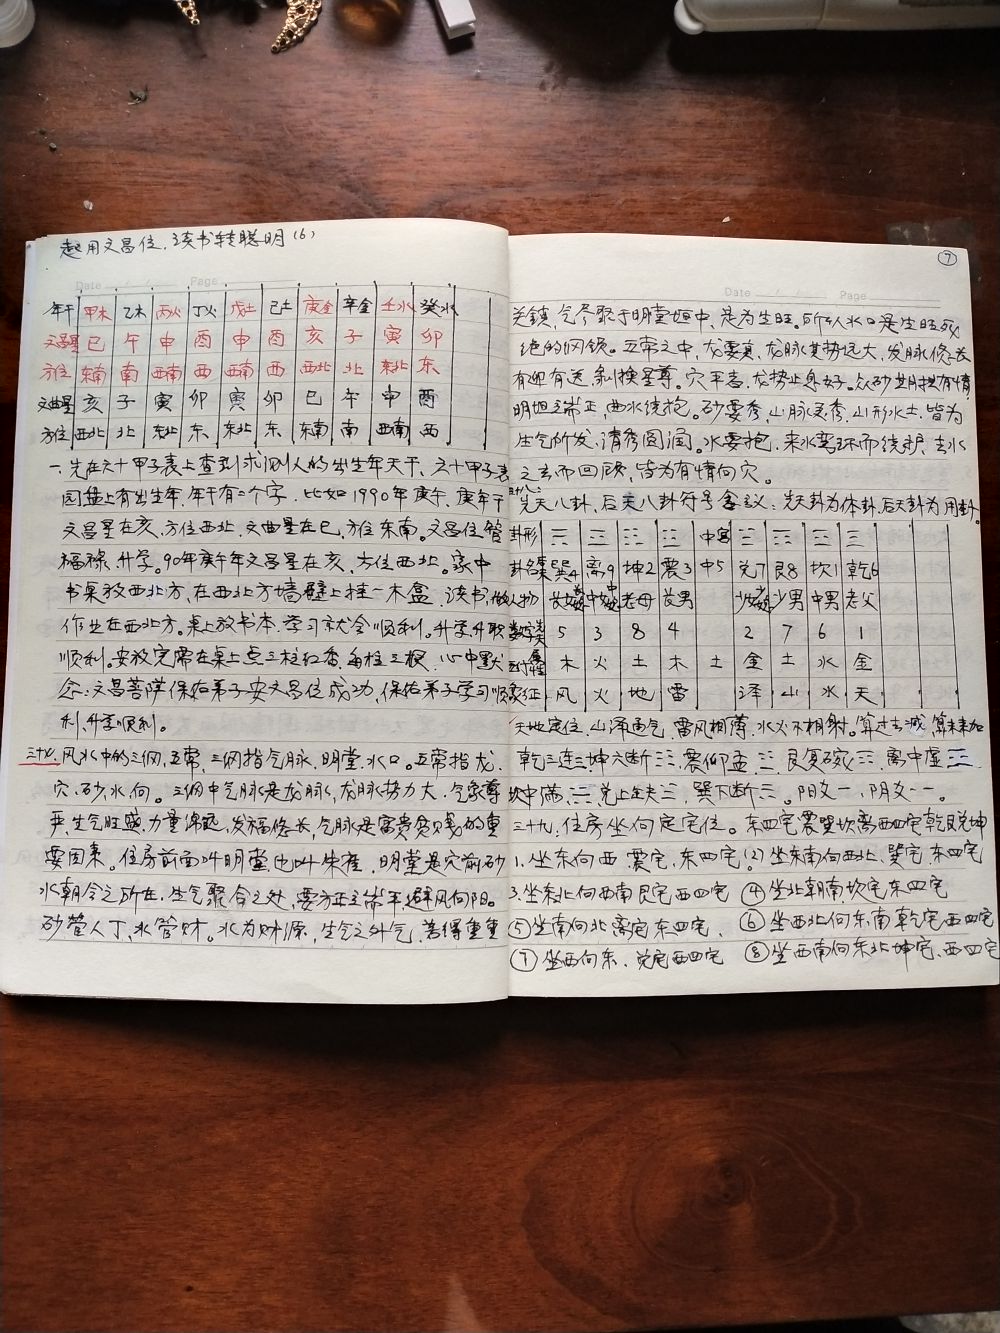 起用文昌位,读书转聪明(6)
Date Page
年干 甲木 乙木 丙火 丁火 戊土 己土 庚金 辛金 壬水 癸水
文昌星 巳 午 申 酉 申 酉 亥 子 寅 卯
方位 东南 南 西南 西 西南 西 西北 北 东北 东
文曲星 亥 子 寅 卯 寅 卯 巳 午 申 酉
方位 西北 北 东北 东 东北 东 东南 南 西南 西
一.先在六十甲子表上查到求测人的出生年天干,六十甲子表
圆盘上有出生年,年干有二个字.比如1990年庚午,庚年干
文昌星在亥,方位西北,文曲星在巳,方位东南。文昌位管
福禄,升学。90年庚午年文昌星在亥,方位西北。家中
书桌放西北方,在西北方墙壁上挂一木盒.读书,做
作业在西北方。桌上放书本.学习就会顺利。升学,升职
顺利。安放完需在桌上点三柱红香,每柱三根.心中默
念:文昌菩萨保佑弟子安文昌位成功,保佑弟子学习顺
利,升学顺利。
三十七.风水中的三纲,五常,三纲指气脉.明堂.水口。五常指龙.
穴.砂.水.向。三纲中气脉是龙脉,龙脉势力大.气象尊
严,生气旺盛.力量绵延,发福悠长,气脉是富贵贫贱的重
要因素。住房前面叫明堂,也叫朱雀.明堂是穴前砂
水朝会之所在.生气聚合之处,要方正立端平,避风向阳。
砂管人丁,水管财。水为财源,生气之外气,善得重重
⑦
Date Page
关镇,气尽聚于明堂垣中,是为生旺。所以水口是生旺死
绝的纲领。五常之中,龙要真,龙脉其势远大,发脉修长
有迎有送,剥换星尊。穴平志,龙势止息好。众砂共拱有情
明坦端正,曲水绕抱。砂要秀,山脉灵秀,山形水土,皆为
生气所发,清秀圆润。水要抱,来水弯环而绕抱,去水
之玄而回顾,皆为有情向穴。
三十八:
先天八卦,后天八卦符号含议:先天卦为体卦,后天卦为用卦。
卦形 ☴ ☲ ☷ ☳ 中宫 ☱ ☶ ☵ ☰
卦名 巽4 离9 坤2 震3 中5 兑7 艮8 坎1 乾6
人物 长女 中女 老母 长男 少女 少男 中男 老父
数字 5 3 8 4 2 7 6 1
五行属性 木 火 土 木 土 金 土 水 金
象征 风 火 地 雷 泽 山 水 天
天地定位,山泽通气,雷风相薄,水火不相射。算过去减,算未来加
乾三连☰坤六断☷,震仰盂☳,艮复碗☶,离中虚☲
坎中满,☵兑上缺☱,巽下断☴。阳爻一,阴爻--。
三十九,住房坐向定宅位。东四宅震巽坎离西四宅乾艮兑坤
1.坐东向西 震宅,东四宅.(2)坐东南向西北,巽宅东四宅
3.坐东北向西南艮宅西四宅 ④坐北朝南,坎宅东四宅
⑤坐南向北离宅东四宅. ⑥坐西北向东南乾宅西四宅
⑦坐西向东.兑宅西四宅 ⑧坐西南向东北坤宅.西四宅